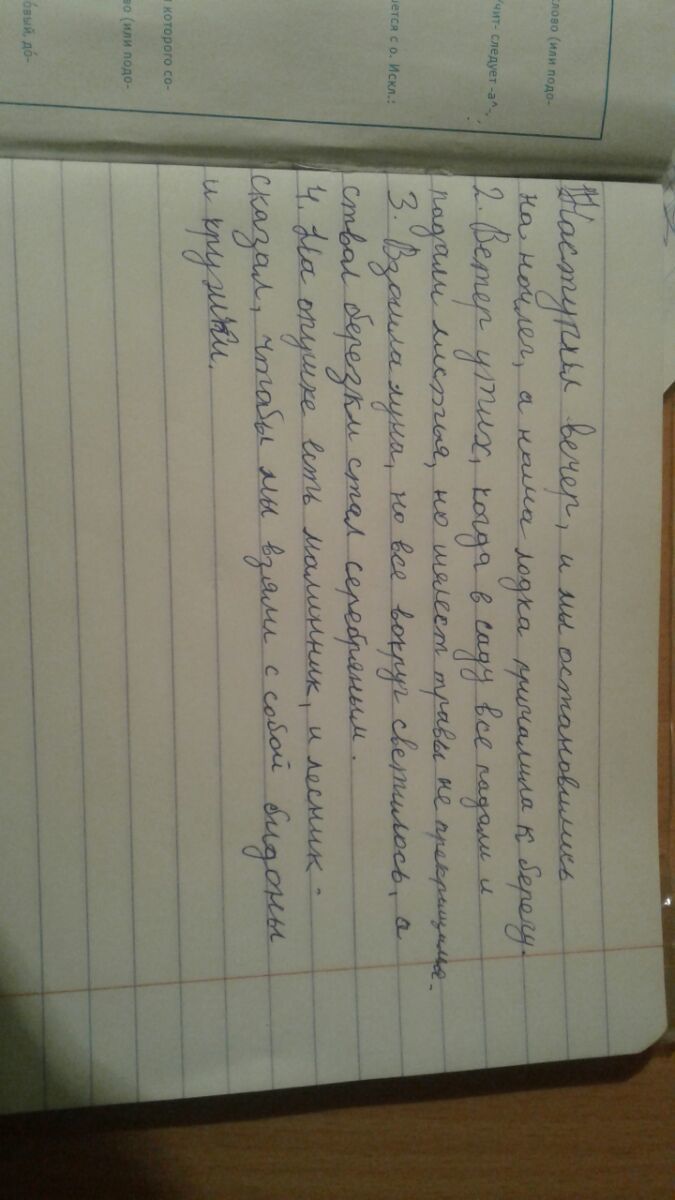 слово (или подо-
Учит- следует -а^-,
шется с о. Искл.:
и которого со-
во (или подо-
о́вый, до́-
Наступил вечер, и мы остановились
на ночлег, а наша лодка причалила к берегу.
2. Ветер утих, когда в саду все падали и
падали листья, но шелест травы не прекращался.
3. Взошла луна, но все вокруг светилось, а
ствол березки стал серебряным.
4. На опушке есть малинник, и лесник
сказал, чтобы мы взяли с собой бидоны
и кружки.